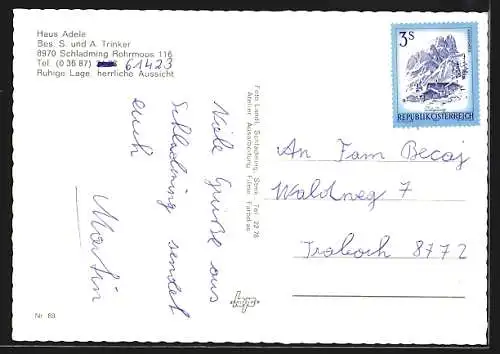 Haus Adele
Bes. S. und A. Trinker
8970 Schladming Rohrmoos 116
Tel. (0 36 87) 61423
Ruhige Lage, herrliche Aussicht
Viele Grüße aus
Schladming sendet
euch
Martin
Nr. 83
Foto Landl, Schladming, Stmk. Tel. 22 78
Atelier Ausarbeitung Filme
3 S
REPUBLIK ÖSTERREICH
An Fam Becaj
Waldweg 7
Traboch 8772